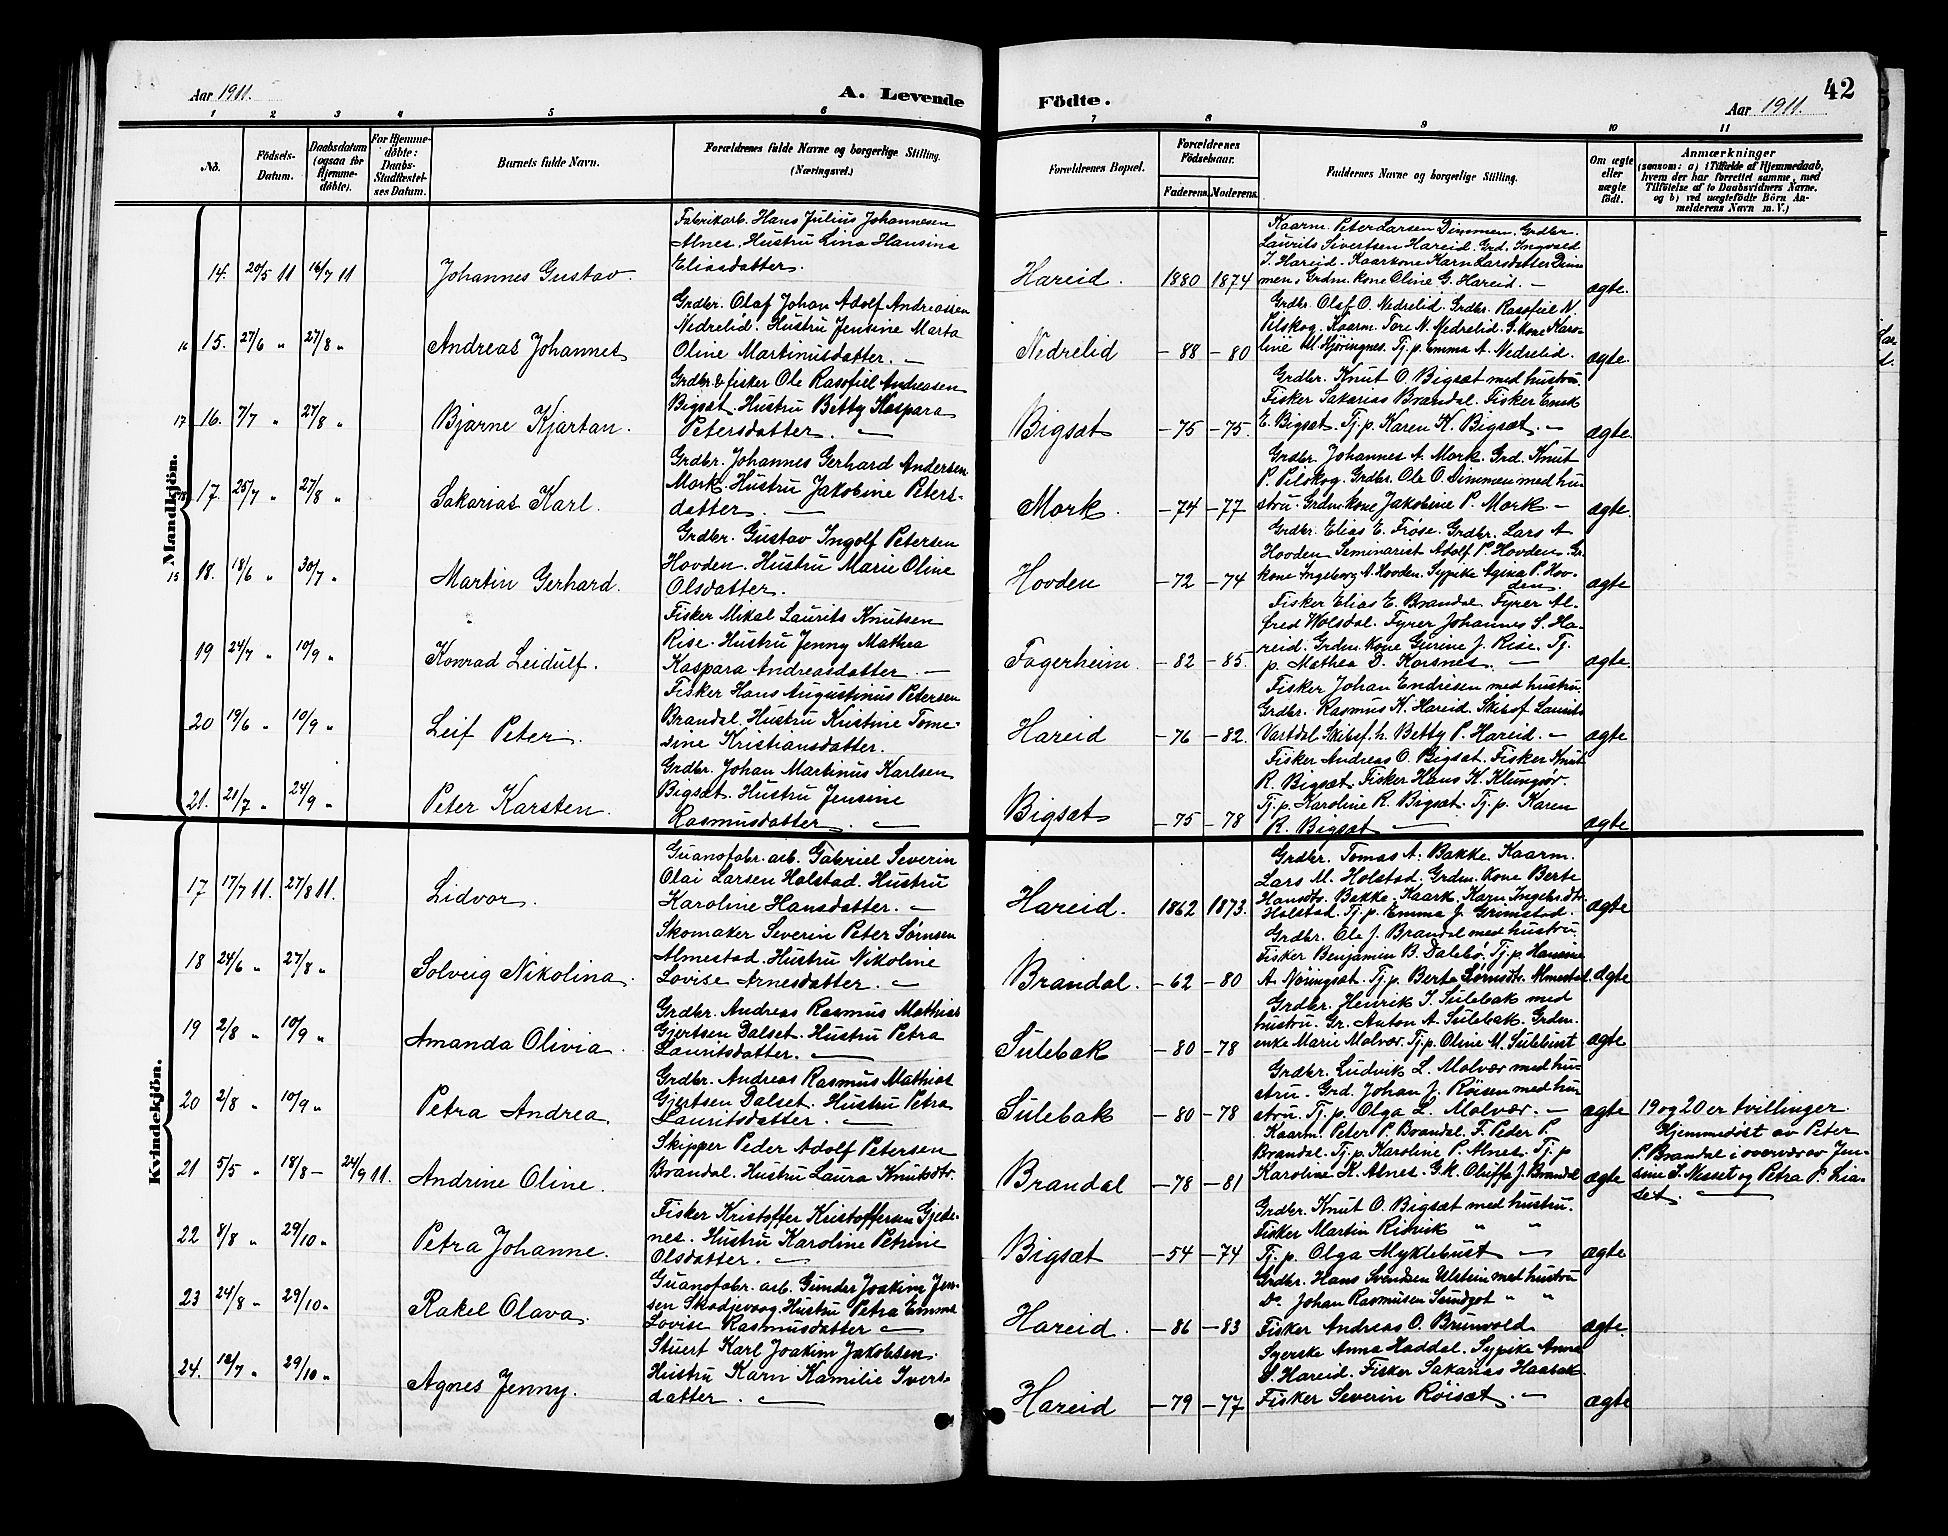 Aar 1911.
A. Levende
Födte.
42
Aar 1911.
1 2 3 4 5 6 7 8 9 10 11
No.
Födsels-
Datum.
Daabsdatum
(ogsaa for
Hjemme-
döbte).
For Hjemme-
döbte:
Daabs-
Stadfæstel-
ses Datum.
Barnets fulde Navn.
Forældrenes fulde Navne og borgerlige Stilling.
(Næringsvei.)
Forældrenes Bopæl.
Forældrenes
Födselsaar.
Faderens.
Moderens.
Faddernes Navne og borgerlige Stilling.
Om ægte
eller
uægte
födt.
Anmærkninger
(saasom: a) i Tilfælde af Hjemmedaab,
hvem der har forrettet samme, med
Tilföielse af to Daabsvidners Navne.
og b) ved uægtefödte Börn An-
melderens Navn m. V.)
Mandkjön.
14. 20/5 11 16/7 11
Johannes Gustav.
Fabrikarb. Hans Julius Johannesen
Alnes. Hustru Lina Hansina
Eliasdatter.
Hareid. 1880 1874
Kaarm. Peter Larsen Dimmen. Grdbr.
Laurits Sivertsen Hareid. Grd. Ingvald
J. Hareid. Kaarkone Karn Larsdatter Dim
men. Grdm. kone Oline G. Hareid. —
ægte.
16 15. 27/6 " 27/8 "
Andreas Johannes
Grdbr. Olaf Johan Adolf Andreassen
Nedrelid. Hustru Jensine Marta
Oline Martinusdatter. —
Nedrelid — 88 — 80
Grdbr. Olaf O. Nedrelid. Grdbr. Rasfiel N.
Pilskog. Kaarm. Tore N. Nedrelid. G. kone Karo-
line M. Hjøringnes. Tj. p. Emma A. Nedrelid.
ægte.
17 16. 7/7 " 27/8 "
Bjarne Kjartan.
Grdbr. & fisker Ole Rasfiel Andreasen
Bigsæt. Hustru Betty Kaspara
Petersdatter. —
Bigsæt — 75 — 75.
Grdbr. Knut O. Bigsæt med hustru.
Fisker Sakarias Brandal. Fisker Enok
E. Bigsæt. Tj. p. Karen K. Bigsæt. —
ægte.
17. 25/7 " 27/8 "
Sakarias Karl.
Grdbr. Johannes Gerhard Andersen
Mork. Hustru Jakobine Peters-
datter. —
Mork. — 74 — 77
Grdbr. Johannes A. Mork. Grd. Knut
P. Pilskog. Grdbr. Ole O. Dimmen med hu-
stru. Grdm. kone Jakobine P. Mork. —
ægte.
15 18. 18/6 " 30/7 "
Martin Gerhard.
Grdbr. Gustav Ingolf Petersen
Hovden. Hustru Marie Oline
Olsdatter.
Hovden — 72 — 74
Grdbr. Elias E. Frøse. Grdbr. Lars A.
Hovden. Seminarist Adolf P. Hovden. Gr.
kone Ingeborg A. Hovden. Sypike Agina P. Hov-
den
ægte
19 24/7 " 10/9 "
Konrad Leidulf.
Fisker Mikal Laurits Knutsen
Rise. Hustru Jenny Mathea
Kaspara Andreasdatter. —
Fagerheim. — 82 — 85.
Fisker Elias E. Brandal. Fyrer Al-
fred Wolsdal. Fyrer Johannes S. Ha-
reid. Grdm. kone Gurine J. Rise. Tj.
p. Mathea D. Korsnes. —
ægte.
20 19/6 " 10/9 "
Leif Peter.
Fisker Hans Augustinus Petersen
Brandal. Hustru Kristine Tome-
sine Kristiansdatter.
Hareid — 76 — 82.
Fisker Johan Endresen med hustru.
Grdbr. Rasmus K. Hareid. Skibsf. Laurits
Vartdal. Skibsf. h. Betty P. Hareid. —
ægte
21. 21/7 " 24/9 "
Peter Karsten.
Grdbr. Johan Martinus Karlsen
Bigsæt. Hustru Jensine
Rasmusdatter. —
Bigsæt — 75 — 78
Fisker Andreas O. Bigsæt. Fisker Knut
R. Bigsæt. Fisker Hans K. Klungsør.
Tj. p. Karoline R. Bigsæt. Tj. p. Karen
R. Bigsæt —
ægte
Kvindekjön.
17 17/7 11. 27/8 11.
Lidvor.
Guanofabr. arb. Gabriel Severin
Olai Larsen Holstad. Hustru
Karoline Hansdatter. —
Hareid. 1862 1873.
Grdbr. Tomas A. Bakke. Kaarm.
Lars M. Holstad. Grdm. kone Berte
Hansdtr. Bakke. Kaark. Karn Ingebr.dtr.
Holstad. Tj. p. Emma J. Grimstad.
ægte
18 24/6 " 27/8 "
Solveig Nikolina.
Skomaker Severin Peter Sørnsen
Almestad. Hustru Nikoline
Lovise Arnesdatter. —
Brandal. — 62 — 80
Grdbr. Ole J. Brandal med hustru
Fisker Benjamin B. Dalebø. Tj. p. Hansine
A. Nøringsæt. Tj. p. Berte Sørnsdtr. Almestad.
ægte
19 2/8 " 10/9 "
Amanda Olivia.
Grdbr. Andreas Rasmus Mathias
Gjertsen Dalset. Hustru Petra
Lauritsdatter. —
Sulebak — 80 — 78
Grdbr. Henrik I. Sulebak med
hustru. Gr. Anton A. Sulebak. Grdm.
enke Marie Molvær. Tj. p. Oline M. Sulebust
ægte
20 2/8 " 10/9 "
Petra Andrea
Grdbr. Andreas Rasmus Mathias
Gjertsen Dalset. Hustru Petra
Lauritsdatter. —
Sulebak — 80 — 78
Grdbr. Ludvik L. Molvær med hu-
stru. Grd. Johan J. Røisen med hu-
stru. Tj. p. Olga L. Molvær. —
ægte
19 og 20 er tvillinger.
21 5/5 " 18/8 — 24/9 11.
Andrine Oline.
Skipper Peder Adolf Petersen
Brandal. Hustru Laura Knutsdtr.
Brandal — 78 — 81
Kaarm. Peter P. Brandal. F. Peder P.
Brandal. Tj. p. Karoline P. Alnes. Tj. p
Karoline K. Alnes. G. k. Oluffa J. Brandal
ægte
Hjemmedøbt av Peter
P. Brandal i overvær av Jen-
sine S. Nesset og Petra P. Lia-
set. —
22 8/8 " 29/10 "
Petra Johanne.
Fisker Kristoffer Kristoffersen Gjede-
nes. Hustru Karoline Petrine
Olsdatter. —
Bigsæt — 54 — 74
Grdbr. Knut O. Bigsæt med hustru.
Fisker Martin Risvik " "
Tj. p. Olga Myklebust —
ægte
23 24/8 " 29/10 "
Rakel Olava.
Guanofabr. arb. Gunder Joakim Jen-
sen Skodjevaag. Hustru Petra Emma
Lovise Rasmusdatter —
Hareid. — 86 — 83
Grdbr. Hans Svendsen Ulstein med hustru
Do. Johan Rasmusen Sundgot " "
Fisker Andreas O. Brunvold
ægte.
24. 12/7 " 29/10 "
Agnes Jenny.
Stuert Karl Joakim Jakobsen.
Hustru Karn Kamilie Ivers-
datter. —
Hareid — 79 — 77
Syerske Anna Haddal. Sypike Anna
S. Hareid. Fisker Sakarias Haabak
Fisker Severin Røisæt. —
ægte